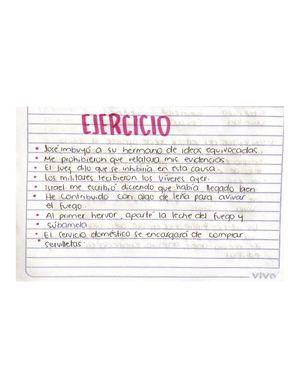 EJERCICIO
• José imbuyó a su hermano de ideas equivocadas.
• Me prohibieron que relatara mis evidencias
• El juez dijo que se inhibiría en esta causa.
• Los militares recibieron los víveres ayer.
• Israel me escribió diciendo que había llegado bien
• He contribuido con algo de leña para avivar
el fuego.
• Al primer hervor, aparte la leche del fuego y
súbamela
• El servicio doméstico se encargará de comprar
servilletas
vivo